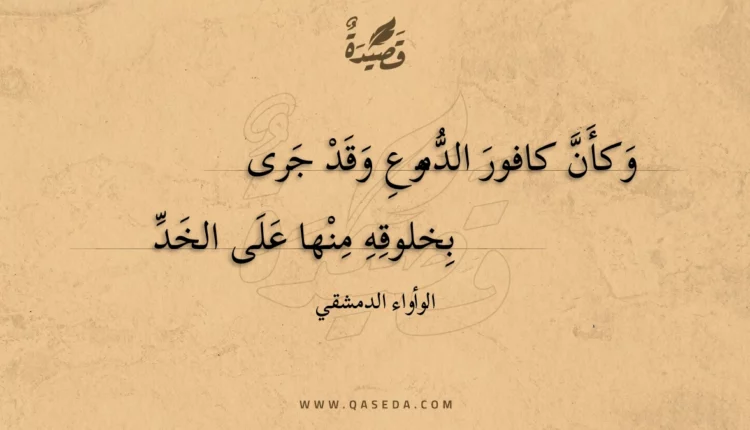 قَصِيدَةٌ
وَكأَنَّ كافورَ الدُّموعِ وَقَدْ جَرى
بِخلوقِهِ مِنْها عَلَى الخَدِّ
الوأواء الدمشقي
WWW.QASEDA.COM